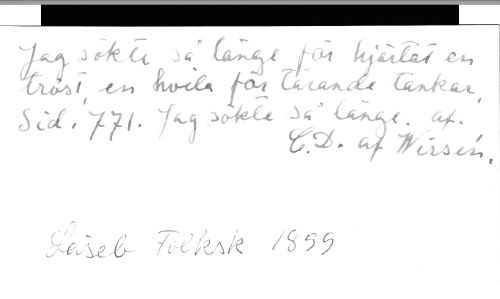 Jag sökte så länge för hjärtat en
tröst, en hvila för tärande tankar.
Sid. 771. Jag sökte så länge. af.
C.D. af Wirsén.
Läseb Folksk 1899